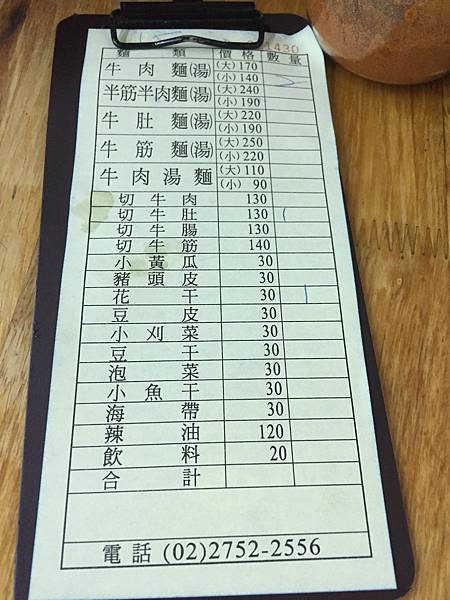 1430
麵 類 價 格 數 量
牛 肉 麵(湯) (大) 170
(小) 140
半筋半肉麵(湯) (大) 240
(小) 190
牛 肚 麵(湯) (大) 220
(小) 190
牛 筋 麵(湯) (大) 250
(小) 220
牛 肉 湯 麵 (大) 110
(小) 90
切 牛 肉 130
切 牛 肚 130
切 牛 腸 130
切 牛 筋 140
小 黃 瓜 30
豬 頭 皮 30
花 干 30
豆 皮 30
小 刈 菜 30
豆 干 30
泡 菜 30
小 魚 干 30
海 帶 30
辣 油 120
飲 料 20
合 計
電 話 (02)2752-2556